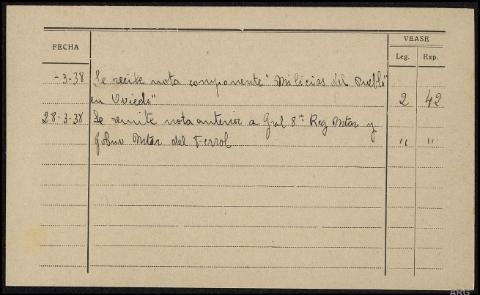 FECHA
VEASE
Leg. Exp.
-3-38 Se recibe nota componente "Milicias del Pueblo
en Oviedo" 2 42
28-3-38 Se remite nota anterior a Gral 8ª Reg Mtar y
Gobno Mtar del Ferrol " "
ARG